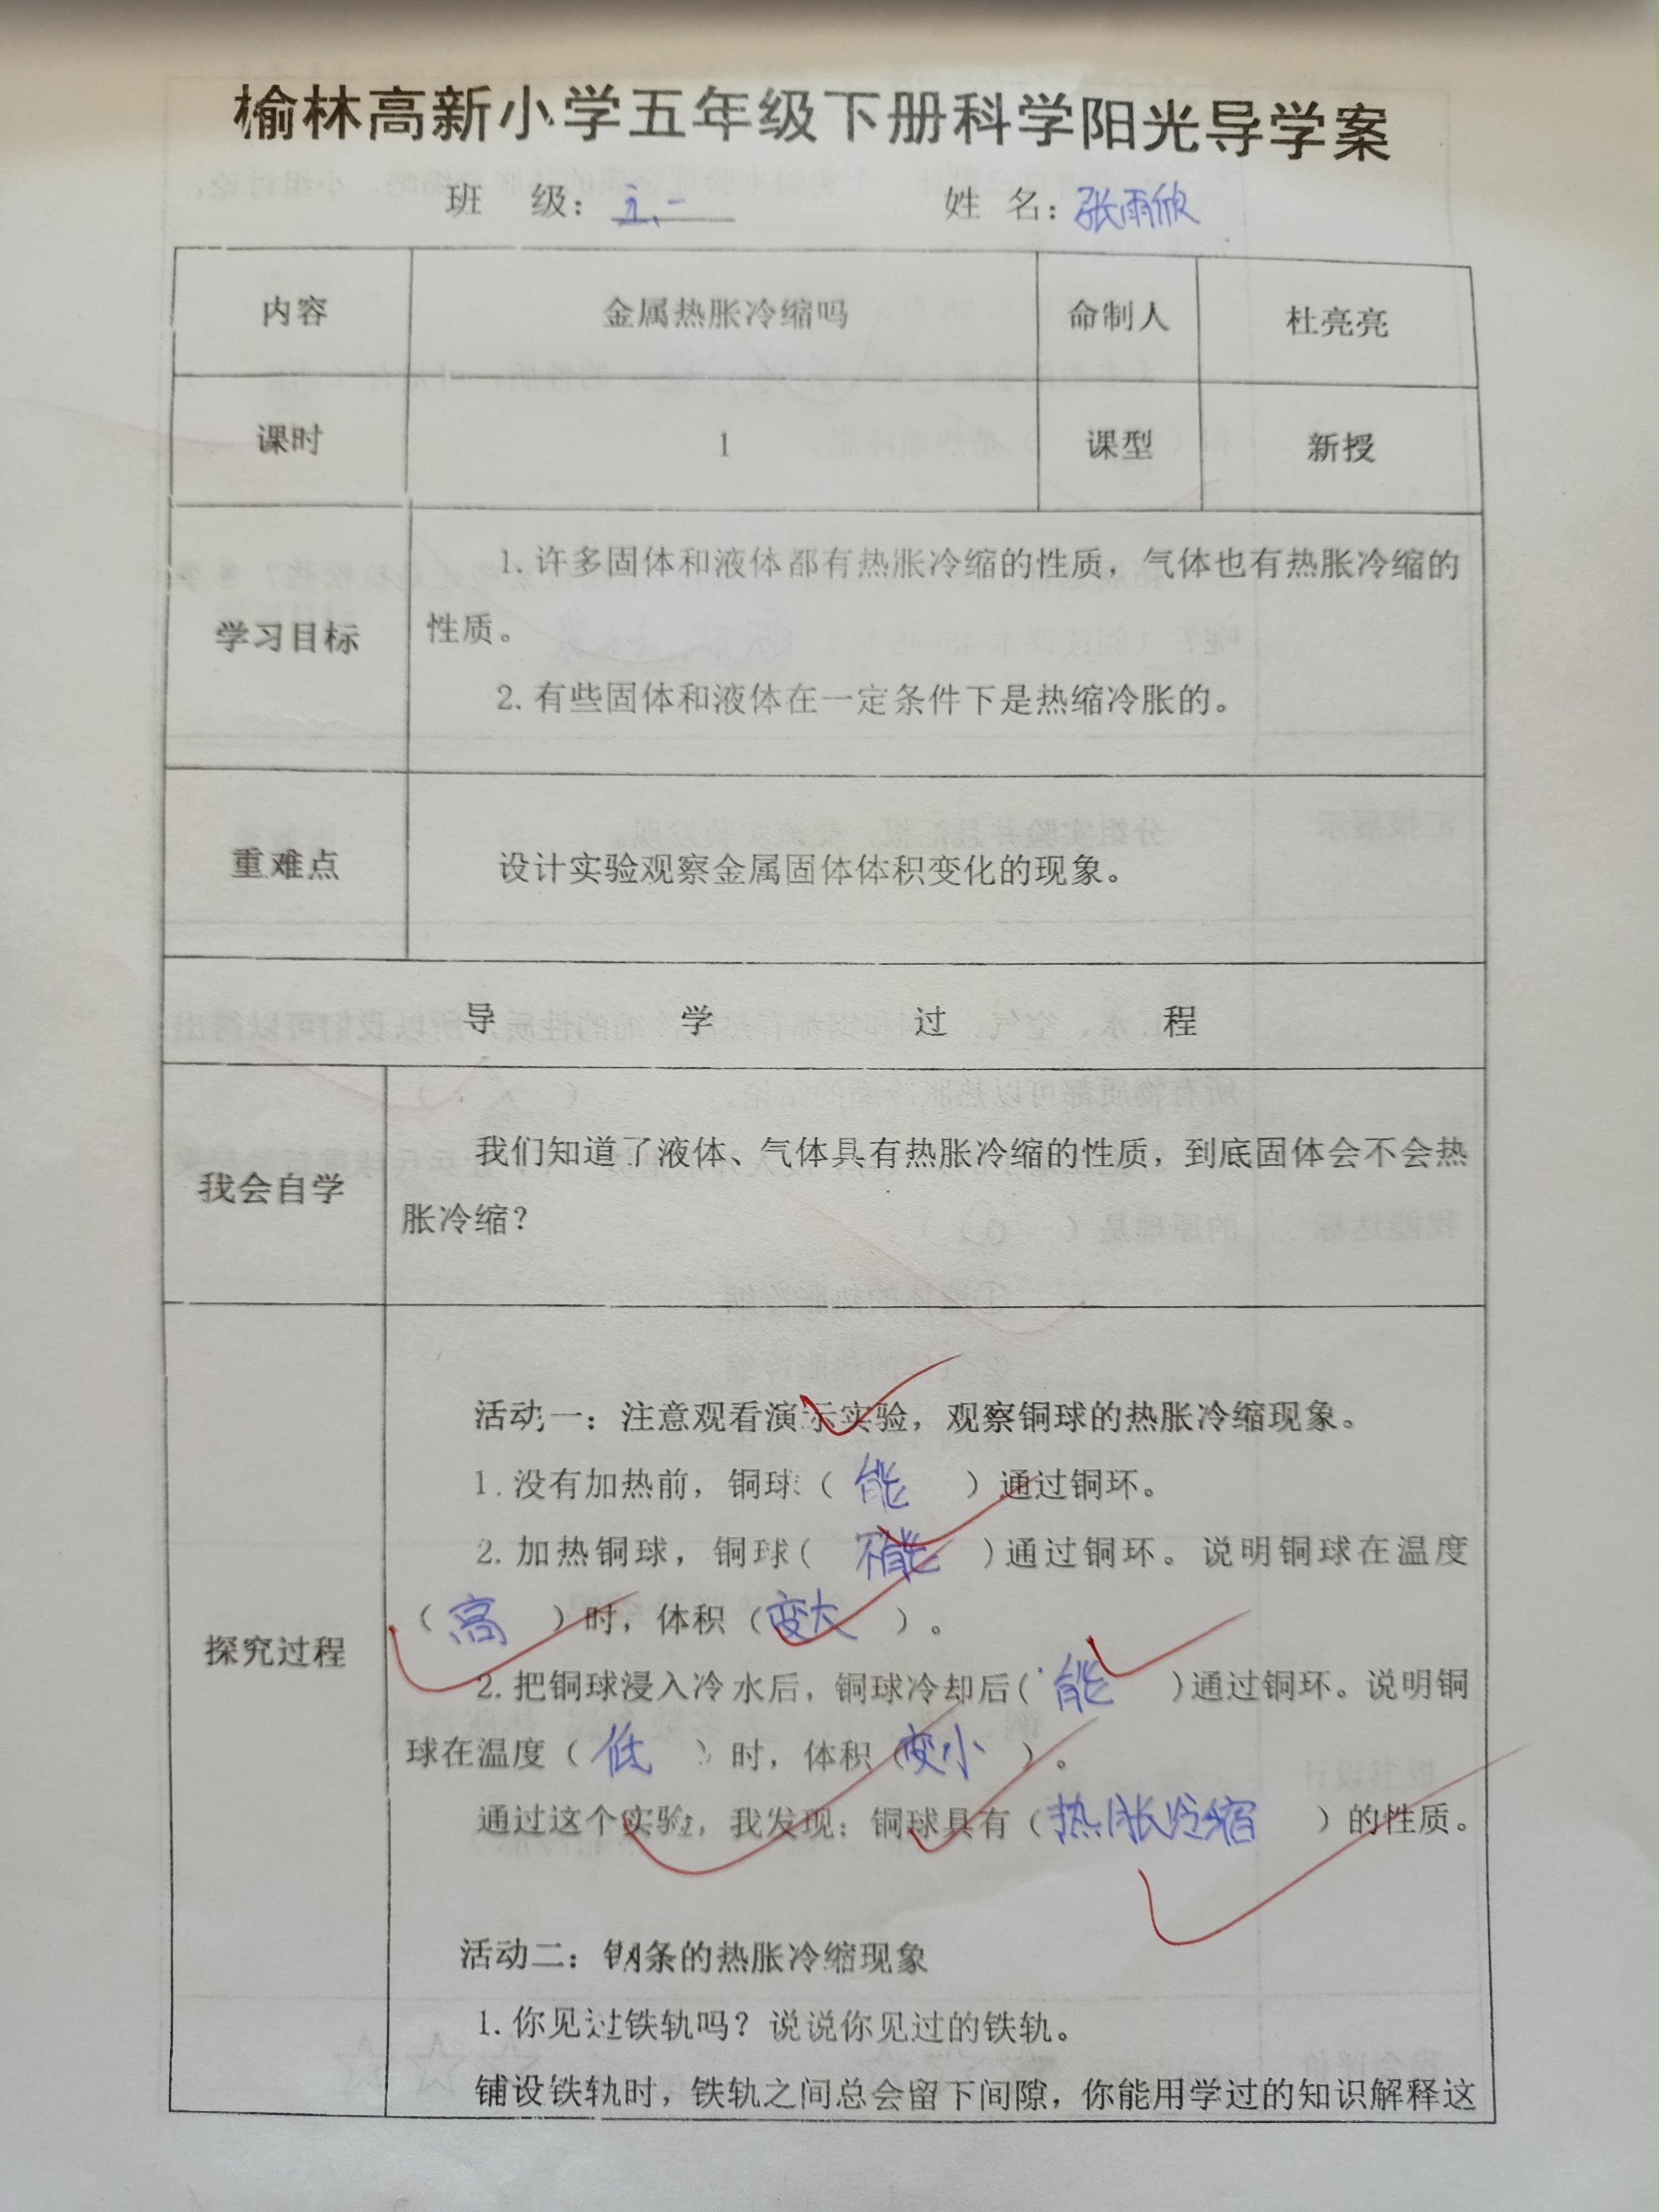 榆林高新小学五年级下册科学阳光导学案
班 级：五、一 姓 名：张雨欣
内容 金属热胀冷缩吗 命制人 杜亮亮
课时 1 课型 新授
学习目标
1.许多固体和液体都有热胀冷缩的性质，气体也有热胀冷缩的
性质。
2.有些固体和液体在一定条件下是热缩冷胀的。
重难点 设计实验观察金属固体体积变化的现象。
导 学 过 程
我会自学
我们知道了液体、气体具有热胀冷缩的性质，到底固体会不会热
胀冷缩？
探究过程
活动一：注意观看演示实验，观察铜球的热胀冷缩现象。
1.没有加热前，铜球（ 能 ）通过铜环。
2.加热铜球，铜球（ 不能 ）通过铜环。说明铜球在温度
（ 高 ）时，体积（变大 ）。
2.把铜球浸入冷水后，铜球冷却后（ 能 ）通过铜环。说明铜
球在温度（ 低 ）时，体积（变小 ）。
通过这个实验，我发现：铜球具有（热胀冷缩 ）的性质。
活动二：钢条的热胀冷缩现象
1.你见过铁轨吗？说说你见过的铁轨。
铺设铁轨时，铁轨之间总会留下间隙，你能用学过的知识解释这